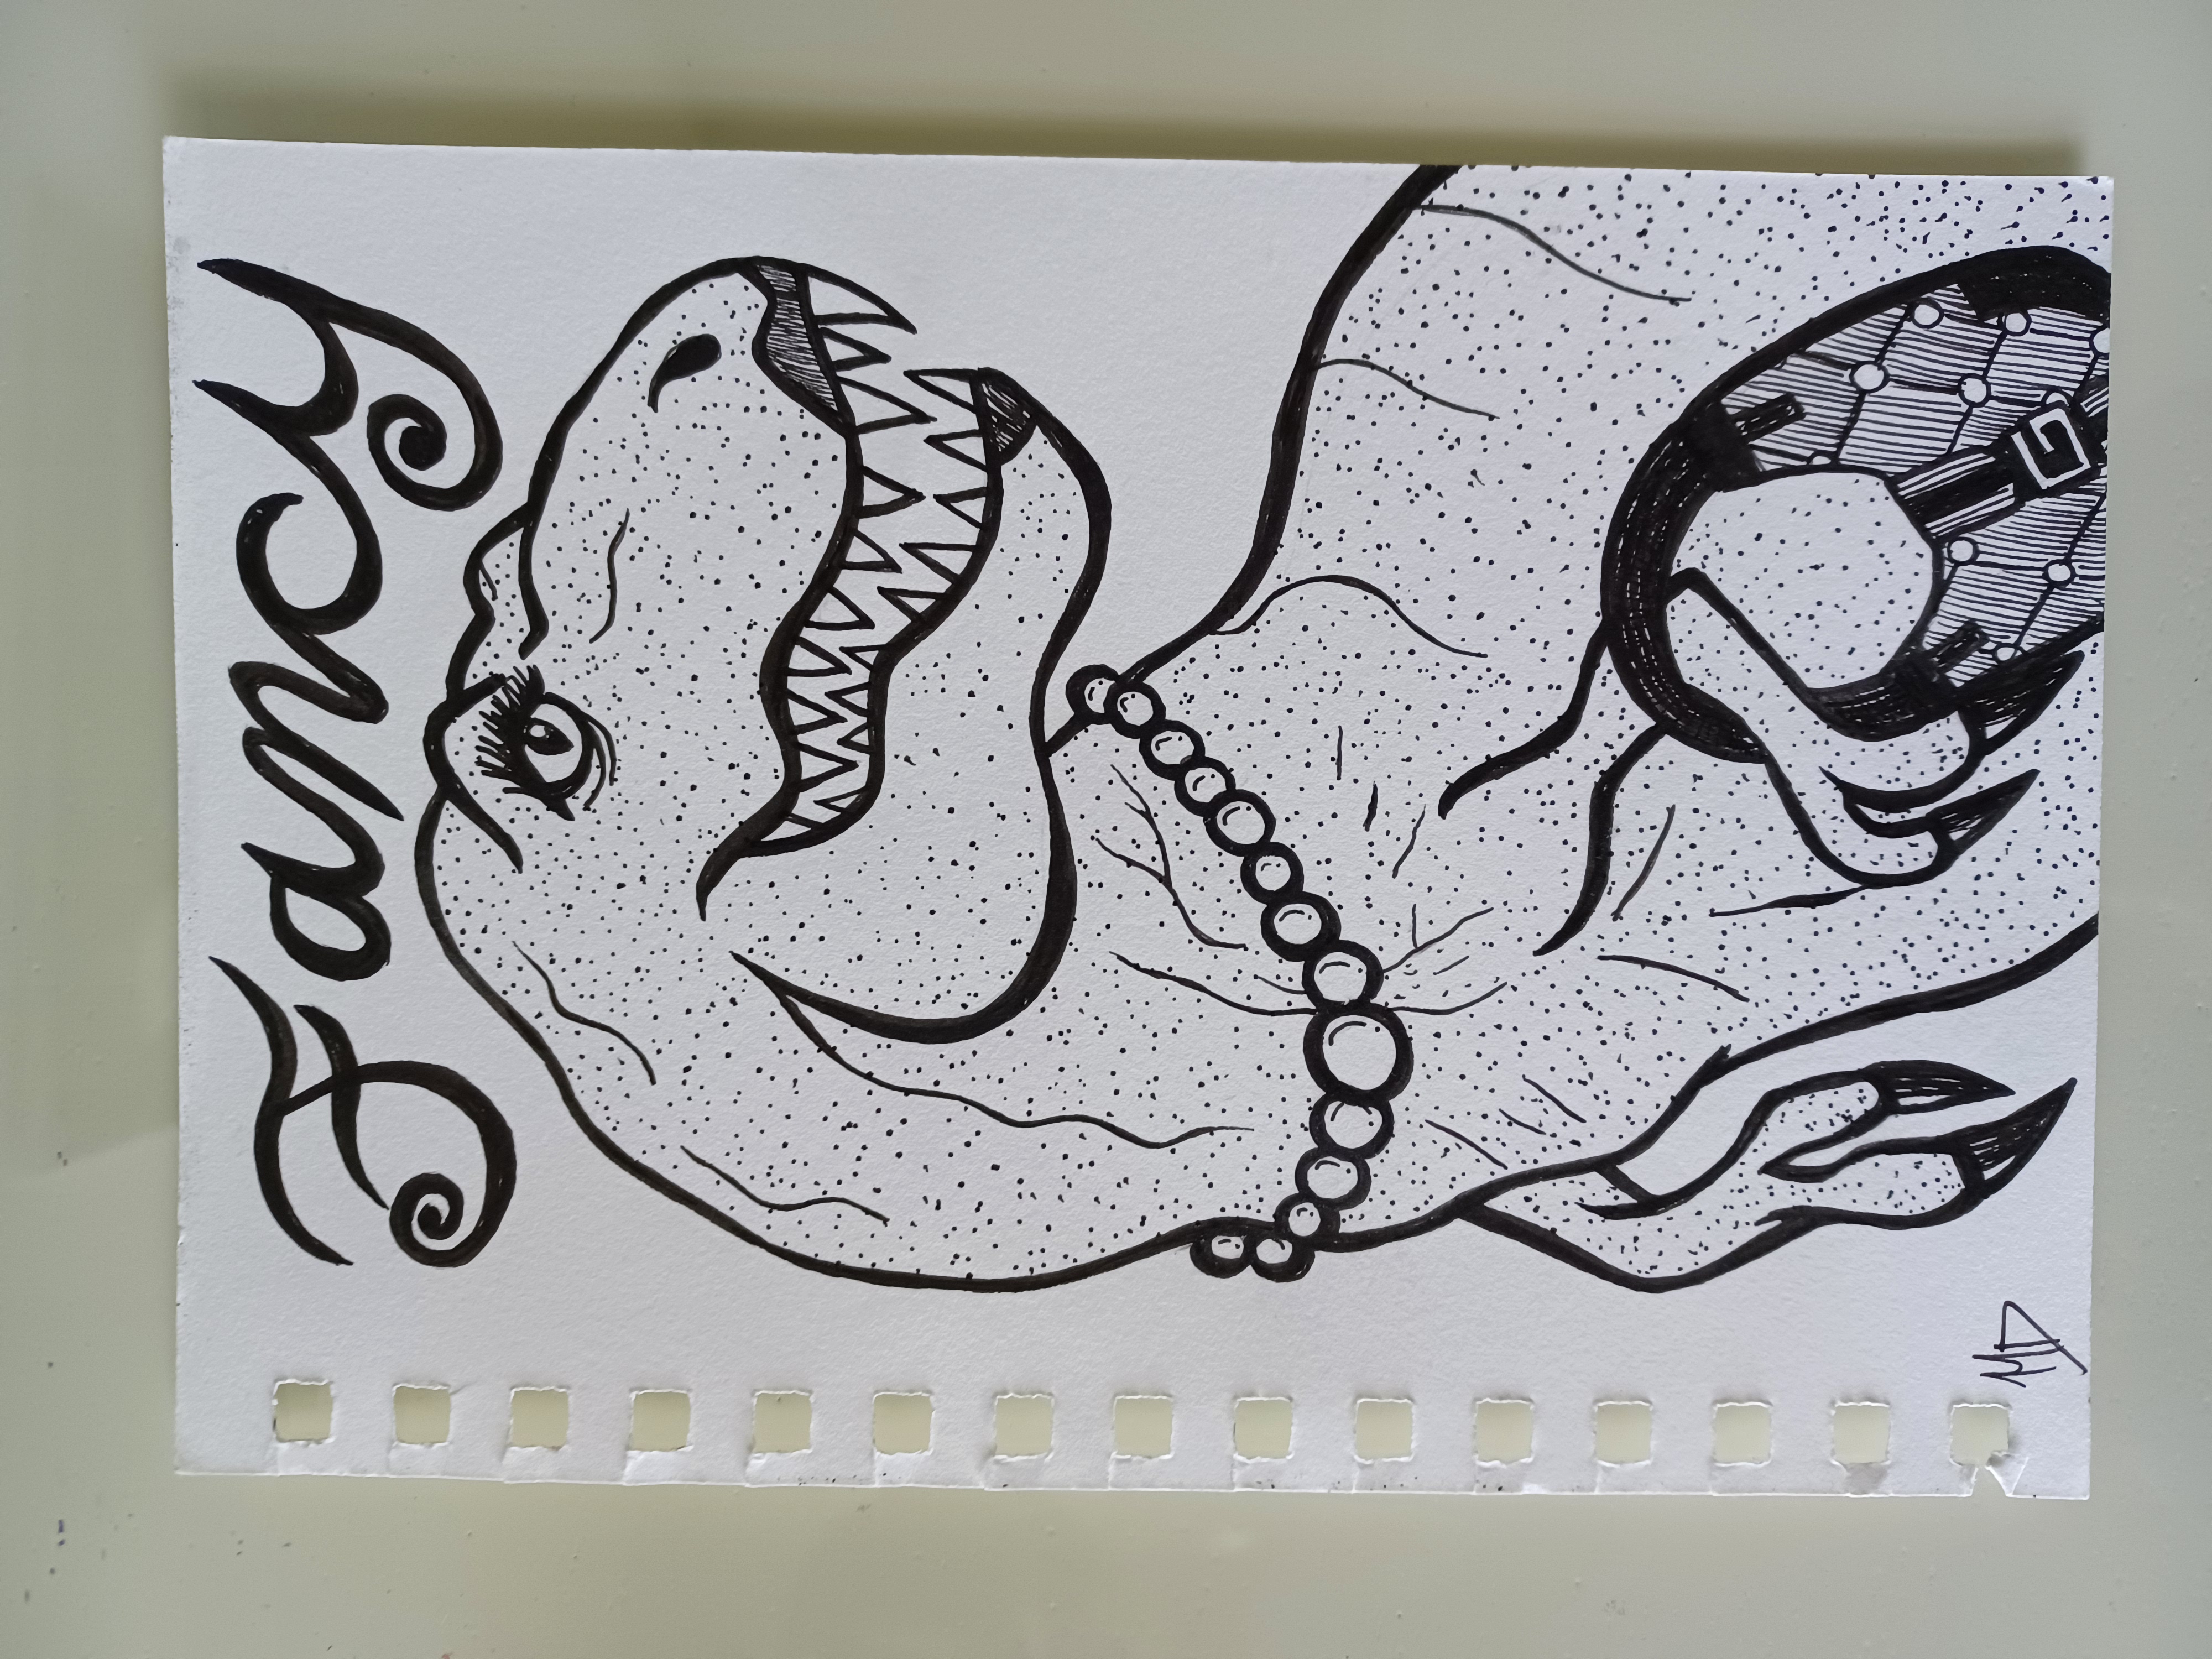 Fancy
MD
G